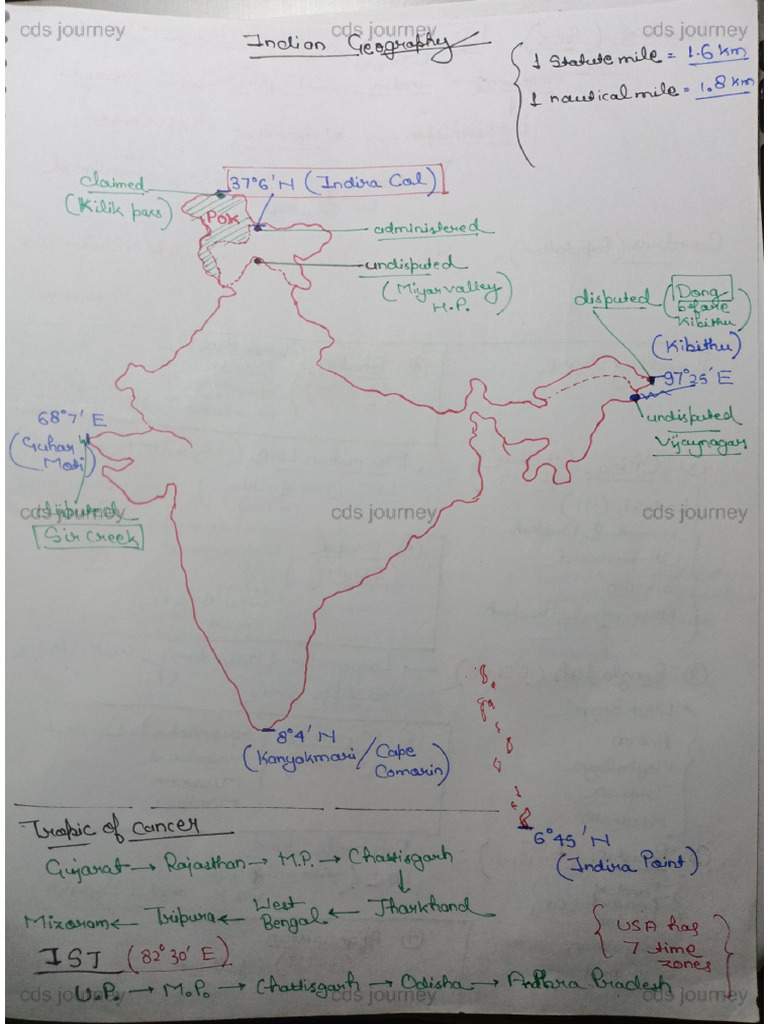 cds journey
cds journey
cds journey
Indian Geography
1 Statute mile = 1.6 km
1 nautical mile = 1.8 km
claimed
(Kilik pass)
37°6'N (Indira Col)
POK
administered
undisputed
(Miyar valley
H.P.)
disputed (Dong
before
Kibithu)
(Kibithu)
97°25'E
undisputed
Vijaynagar
68°7'E
(Guhar
Moti)
disputed
Sir creek
cds journey
cds journey
cds journey
8°4'N
(Kanyakmari/Cape
Comorin)
6°45'N
(Indira Point)
Tropic of cancer
Gujarat → Rajasthan → M.P. → Chattisgarh
↓
Mizoram ← Tripura ← West Bengal ← Jharkhand
IST (82°30'E)
U.P. → M.P. → Chattisgarh → Odisha → Andhra Pradesh
{USA has
7 time
zones}
cds journey
cds journey
cds journey